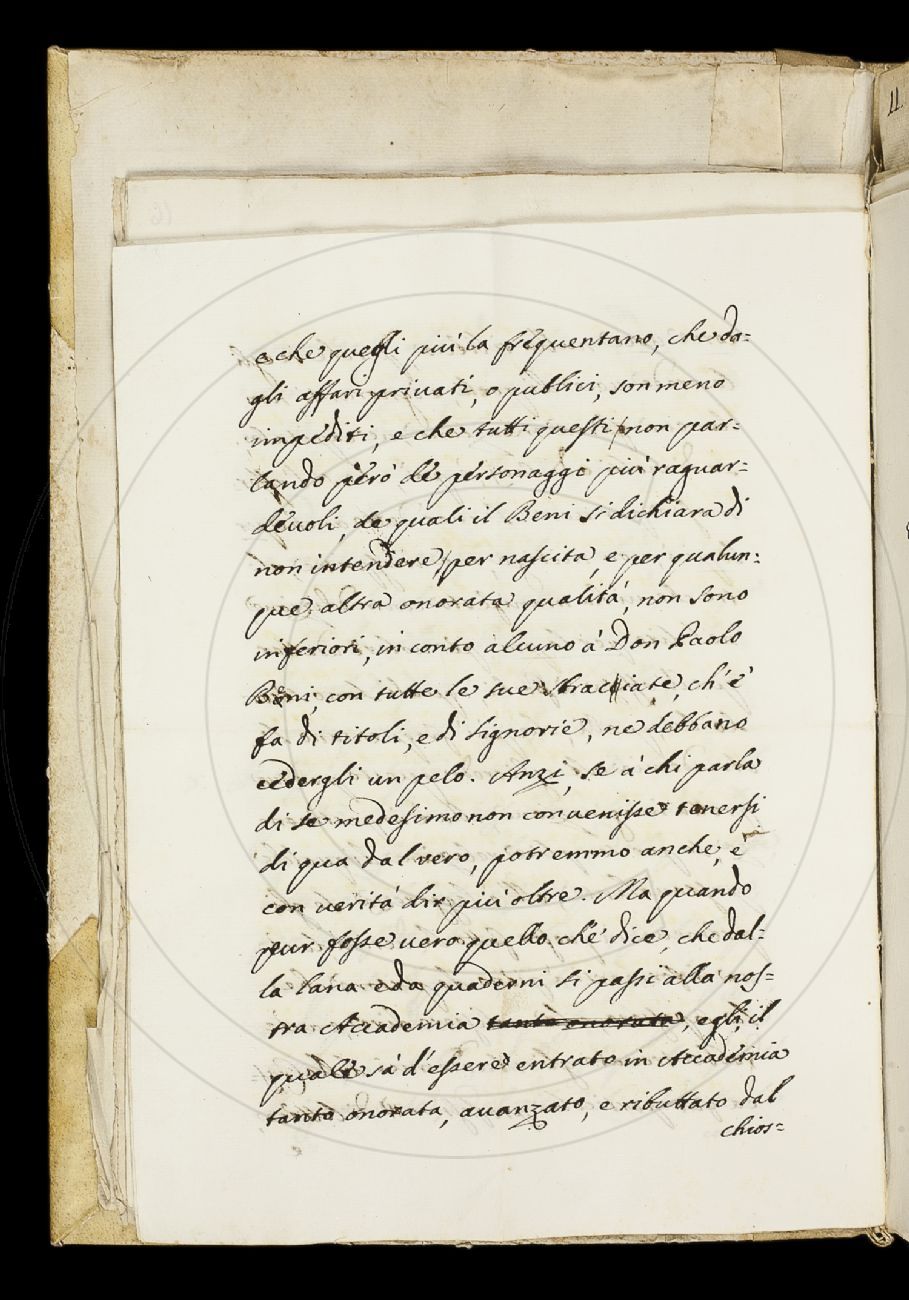 e che quegli piú la frequentano, che da=
gli affari priuati, o publici, son meno
impediti, e che tutti questi /non par=
lando però de personaggi piú raguar=
deuoli, de quali il Beni si dichiara di
non intendere,/ per nascita, e per qualun=
que altra onorata qualità, non sono
inferiori, in conto alcuno à Don Paolo
Beni, con tutte le sue stracciate, ch'è
fa di titoli, e di signorie, ne debbano
cedergli un pelo. Anzi, se à chi parla
di se medesimo non conuenisse tenersi
di qua dal vero, potremmo anche, è
con verità dir piú oltre. Ma quando
pur fosse uero quello, che dice, che dal=
la lana e da quaderni si passi alla nos=
tra Accademia tanto onorata, egli, il
quale sà d'essere entrato in Accademia
tanto onorata, auanzato, e ributtato dal
chios=
11